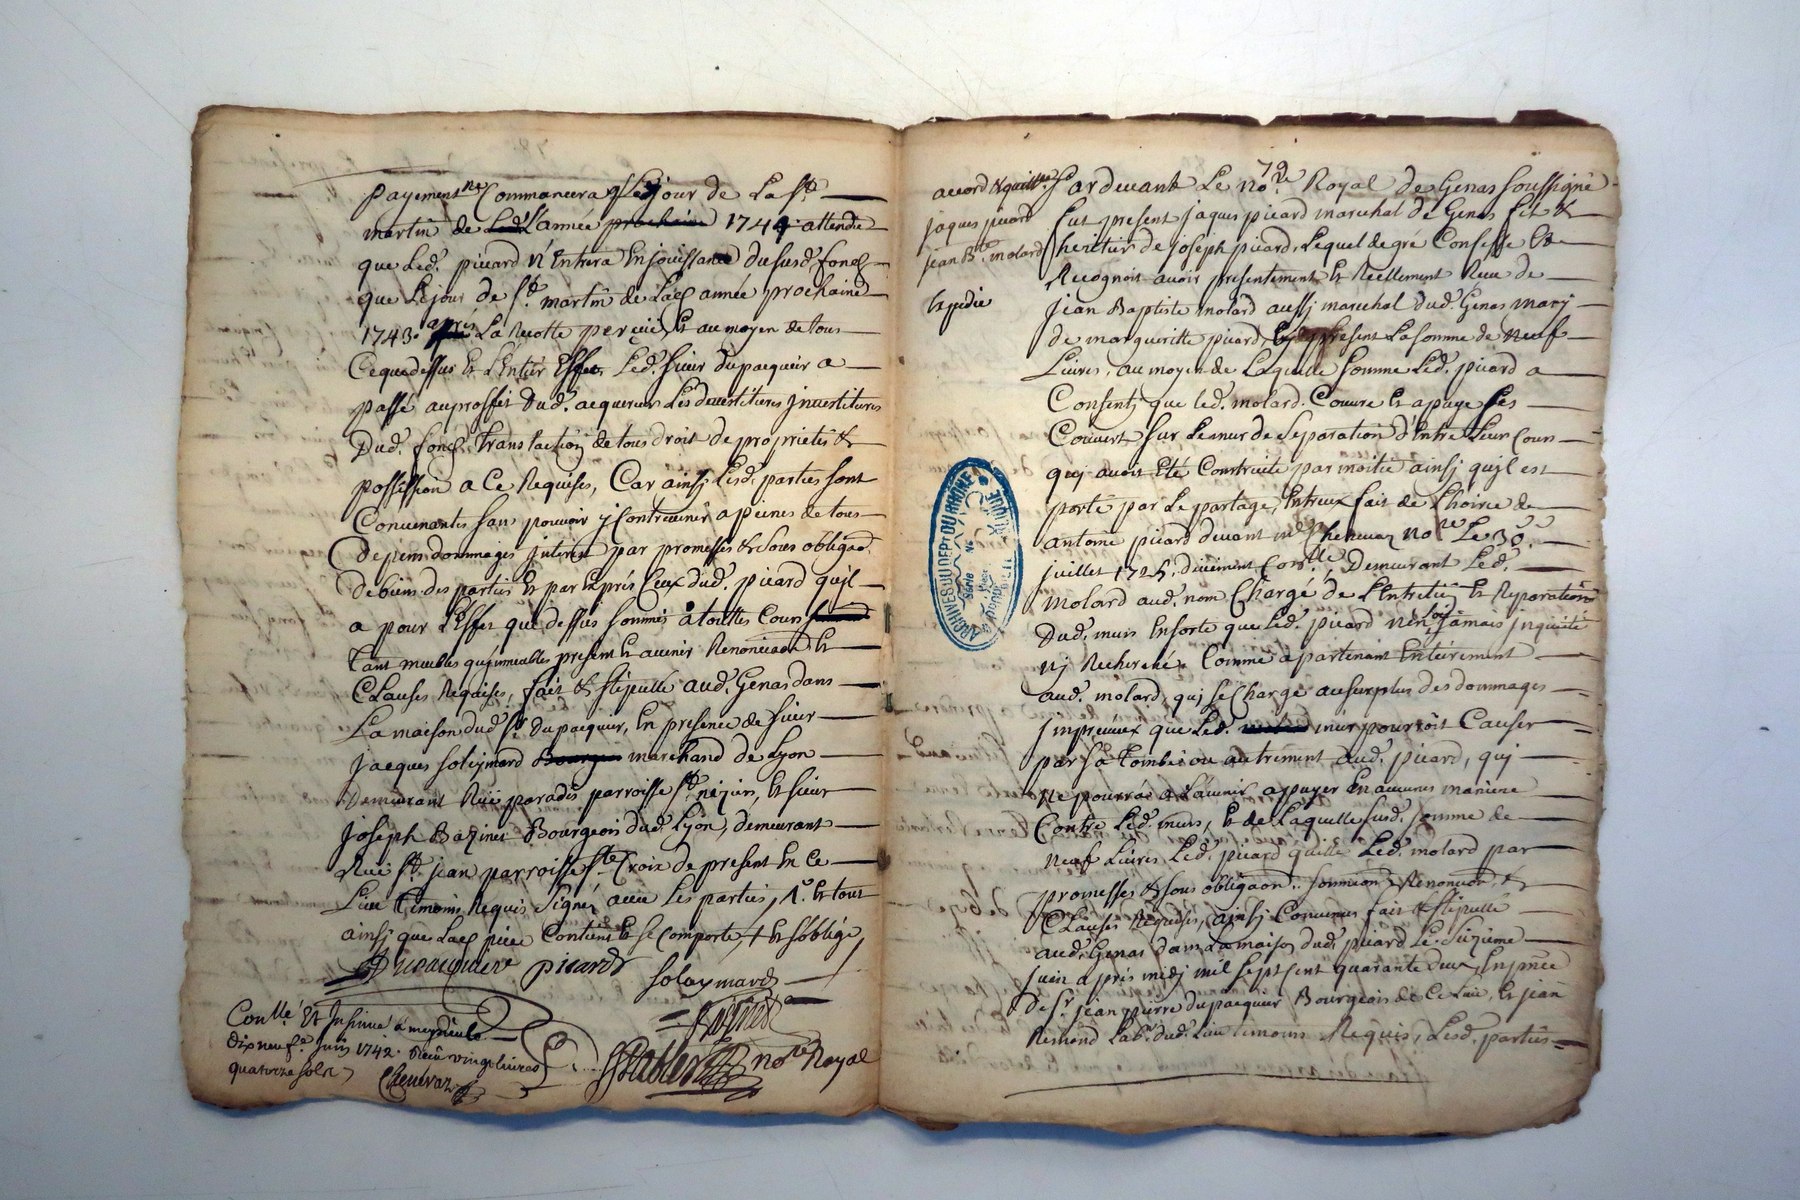 payement ne Commancera q Le jour de La St
martin de L'année prochaine 1744 attendu
que Led. picard N'Entrera En jouissance du susd. fonds
que Le jour de St. martin de Lad année prochaine
1743. après La Recolte perçüe, Et au moyen de tous
Ce que dessus Et L'Entier Effet Led. sieur Dupacquier a
passé au proffit Dud. acquereur Les devestitures jnvestitures
Dud. fonds translaction de tous droit de proprieté &
possession a Ce Requises, Car ainsj Lesd. parties sont
Convenantes sans pouvoir y Contrevenir a peines de tous
Depens dommages jnterest par promesses & sous obligaon
De biens des parties Et par Exprés Ceux dud. picard qujl
a pour L'Effet que dessus soumis à touttes Cours
tant meubles qu'jmmeubles present Et avenir Renonciaon Et
Clauses Requises, fait & stipullé aud. Genas dans
La maison dud. Sr. Dupacquier, En presence de sieur
jacques soleymard marchand de Lyon
Demeurant Rüe paradis parroisse St. nizier, Et sieur
joseph Bazinet Bourgeois dud. Lyon, demeurant
Rüe St. jean parroisse Ste. Croix de present En Ce
Lieu temoins Requis signés avec Les parties,
ainsj que Lad Contient Et se Comporte + Et s'oblige
Dupacquier picard solaymard
Bazinet
Conllé Et Insinué à meyzieule
dix neufe. juin 1742. Reçu vingt livres
quatorze sols
Chenevaz
Nore Royal
79
accord & quittce
jaques picard
jean Bte. molard
Expedie
Pardevant Le nore. Royal de Genas soussigné
fut present jaques picard marechal de Genas fils &
heritier de joseph picard, Lequel de gré Confesse &
Recognoit avoir presentement Et Reellement Receu de
jean Baptiste molard aussj marechal dud. Genas mary
de margueritte picard, Cy present La somme de neuf
Livres, au moyen de Laquelle somme Led. picard a
Consentj que led. molard. Couvre Et apuye ses
Couvert sur Le mur de separation d'Entre Leur Cour
quj avoit Eté Construite par moitié ainsj qujl est
porté par Le partage Entreux fait de L'hoirie de
antoine picard devant me. Chenevaz nore Le 30.
juillet 1725. düement Conllé, Demeurant Led.
molard aud. nom Chargé de L'Entretien Et Reparations
Dud. murs Ensorte que Led. picard N'En soit jamais jnquieté
nj Recherché, Comme apartenant Entierement
aud. molard, quj se Charge au surplus des dommages
jmpreveux que Led. mur pourroit Causer
par sa tombée ou autrement aud. picard, quj
Ne pourra a L'avenir appuyer En aucunes maniere
Contre Led. murs, Et de Laquelle susd. somme de
neuf Livres Led. picard quitte Led. molard par
promesses & sous obligaon. soumion. Renonciaon. &
Clauses Requises, ainsj Convenus fait & stipulle
aud. Genas dans La maison dud. picard Le seizieme
juin après midj mil sept Cent quarante deux, En pnce
De Sr. jean pierre dupacquier Bourgeois de Ce Lieu, Et jean
Remond Labr. dud. Lieu temoins Requis, Lesd. parties
ARCHIVES DU DEPT DU RHONE